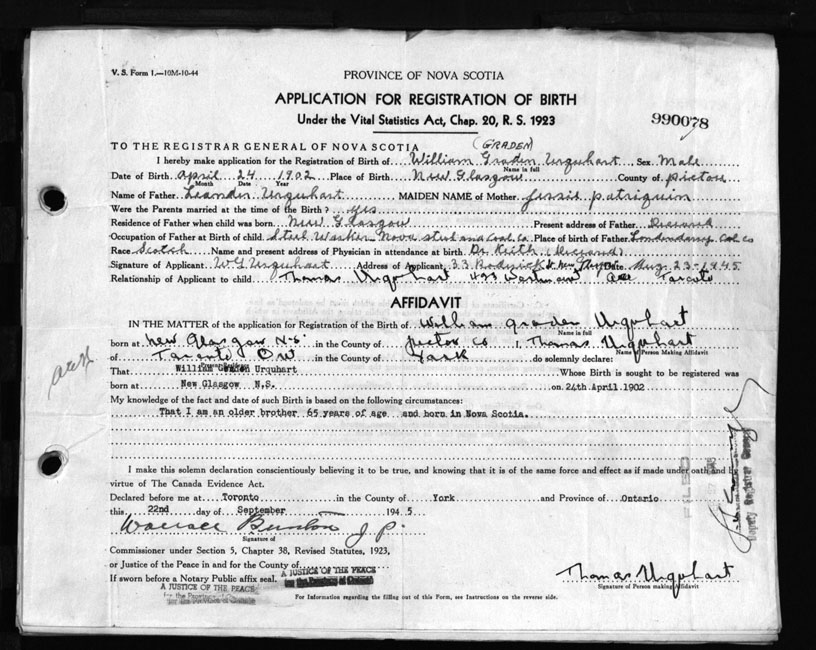 V. S. Form 1.—10M-10-44
PROVINCE OF NOVA SCOTIA
APPLICATION FOR REGISTRATION OF BIRTH
Under the Vital Statistics Act, Chap. 20, R. S. 1923
990078
TO THE REGISTRAR GENERAL OF NOVA SCOTIA (GRADEN)
I hereby make application for the Registration of Birth of William Graden Urquhart Sex Male
Name in full
Date of Birth April 24 1902 Place of Birth New Glasgow County of Pictou
Month Date Year
Name of Father Leander Urquhart MAIDEN NAME of Mother Jessie Patriquin
Were the Parents married at the time of the Birth? yes
Residence of Father when child was born New Glasgow Present address of Father Deceased
Occupation of Father at Birth of child Steel Worker Nova Steel and Coal Co Place of birth of Father Londonderry Col. co
Race Scotch Name and present address of Physician in attendance at birth Dr Keith (Deceased)
Signature of Applicant W G Urquhart Address of Applicant 33 Date Aug. 23-1945
Relationship of Applicant to child Thomas Urquhart 423 Ave Toronto
AFFIDAVIT
IN THE MATTER of the application for Registration of the Birth of William Graden Urquhart
Name in full
born at New Glasgow N.S. in the County of Pictou Co I, Thomas Urquhart
Name of Person Making Affidavit
of Toronto Ont in the County of York do solemnly declare:
That William Urquhart Whose Birth is sought to be registered was
born at New Glasgow N.S. on 24th April 1902
My knowledge of the fact and date of such Birth is based on the following circumstances:
That I am an older brother 65 years of age and born in Nova Scotia.
I make this solemn declaration conscientiously believing it to be true, and knowing that it is of the same force and effect as if made under oath and by
virtue of The Canada Evidence Act.
Declared before me at Toronto in the County of York and Province of Ontario
this 22nd day of September 1945
Wallace J.P.
Signature of
Commissioner under Section 5, Chapter 38, Revised Statutes, 1923,
or Justice of the Peace in and for the County of A JUSTICE OF THE PEACE
for the Province of Ontario
If sworn before a Notary Public affix seal.
A JUSTICE OF THE PEACE
for the Province of Ontario
Thomas Urquhart
Signature of Person making Affidavit
For Information regarding the filling out of this Form, see Instructions on the reverse side.
FILED
Deputy Registrar General